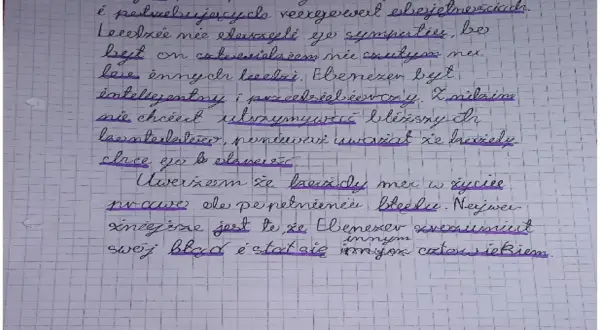 i potrzebujących reagował obojętnościach.
Ludzie nie darzyli go sympatią, bo
był on człowielsem nie czułym na
los innych ludzi. Ebenezer był
inteligentny i przedsiębiorczy. Z nikim
nie chciał utrzymywać bliższych
kontaktów, ponieważ uważał że każdy
chce go okraść.
Uważam że każdy ma w życiu
prawo do popełnienia błędu. Najwa-
żniejsze jest to, że Ebenezer zrozumiał
swój błąd i stał się innym człowiekiem.